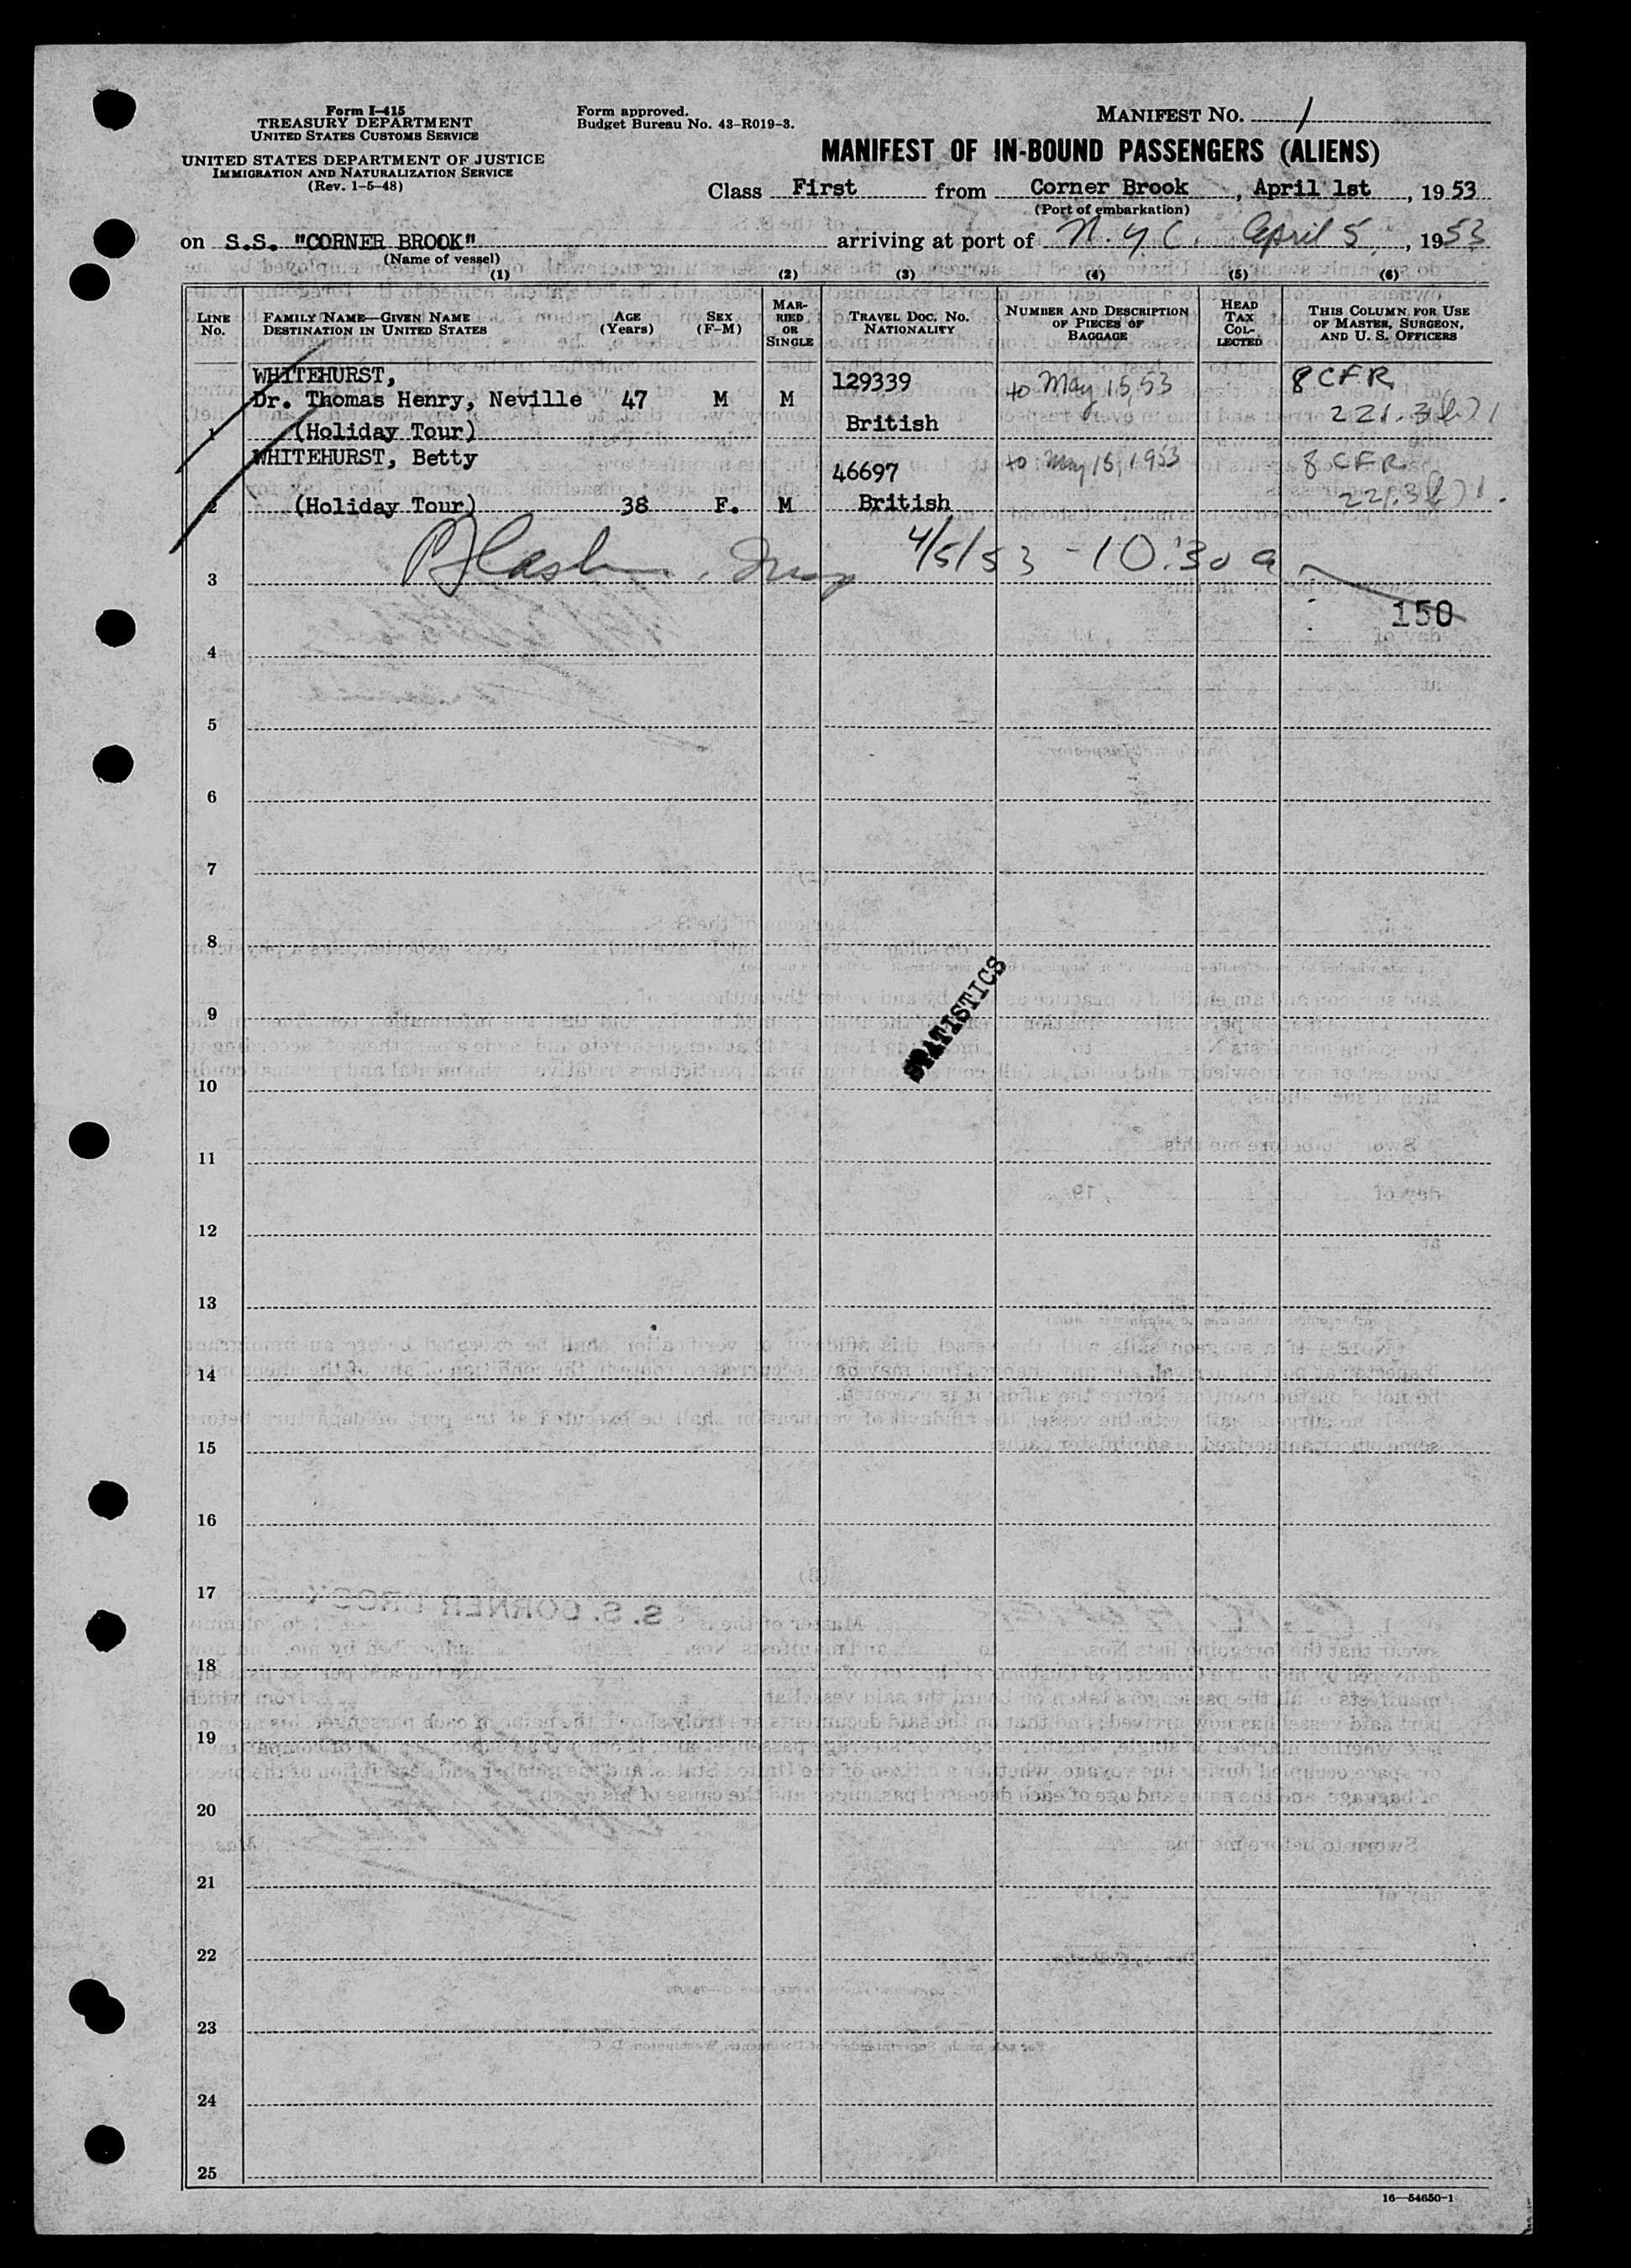 Form I-415
TREASURY DEPARTMENT
UNITED STATES CUSTOMS SERVICE
UNITED STATES DEPARTMENT OF JUSTICE
IMMIGRATION AND NATURALIZATION SERVICE
(Rev. 1-5-48)
Form approved.
Budget Bureau No. 43-R019-3.
MANIFEST NO. 1
MANIFEST OF IN-BOUND PASSENGERS (ALIENS)
Class First from Corner Brook, April 1st, 1953
(Port of embarkation)
on S.S. "CORNER BROOK" arriving at port of N.Y.C. April 5, 1953
(Name of vessel)
(1) (2) (3) (4) (5) (6)
LINE No.
FAMILY NAME—GIVEN NAME
DESTINATION IN UNITED STATES
AGE (Years)
SEX (F-M)
MARRIED OR SINGLE
TRAVEL DOC. NO.
NATIONALITY
NUMBER AND DESCRIPTION OF PIECES OF BAGGAGE
HEAD TAX COLLECTED
THIS COLUMN FOR USE OF MASTER, SURGEON, AND U. S. OFFICERS
WHITEHURST, 129339 to May 15, 53 8 CFR
Dr. Thomas Henry, Neville 47 M M 221.3(b)1
1 (Holiday Tour) British
WHITEHURST, Betty 46697 to May 15, 1953 8 CFR
2 (Holiday Tour) 38 F. M British 221.3(b)1.
3 4/5/53 - 10:30 a
150
4
5
6
7
8
9
STATISTICS
10
11
12
13
14
15
16
17
18
19
20
21
22
23
24
25
16—54650-1